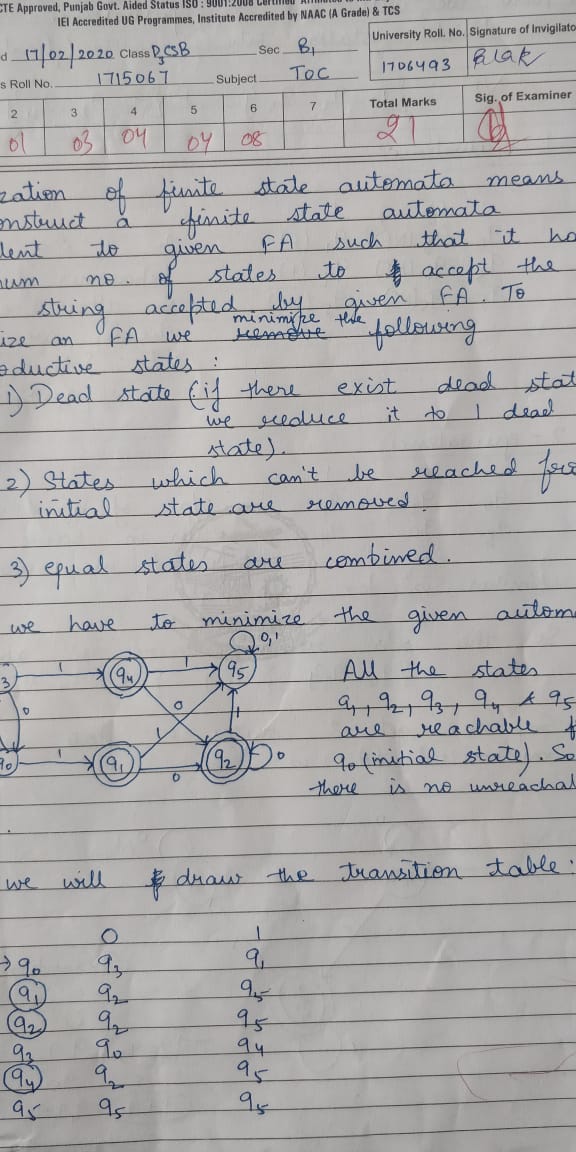 CTE Approved, Punjab Govt. Aided Status ISO : 9001:2008 Certified
IEI Accredited UG Programmes, Institute Accredited by NAAC (A Grade) & TCS
d 17/02/2020 Class D3CSB Sec B1
University Roll. No. Signature of Invigilato
1706493
s Roll No. 1715067 Subject TOC
2 3 4 5 6 7 Total Marks Sig. of Examiner
01 03 04 04 08 21
zation of finite state automata means
onstruct a finite state automata
lent to given FA such that it ha
num no. of states to accept the
string accepted by given FA. To
ize an FA we remove minimize the following
oductive states :
1) Dead state (if there exist dead stat
we reduce it to 1 dead
state).
2) States which can't be reached fro
initial state are removed.
3) equal states are combined.
we have to minimize the given autom
3 1 q4 1 q5 0,1
0 0 1 1
q0 1 q1 0 q2 0
All the states
q1, q2, q3, q4 & q5
are reachable f
q0 (initial state). So
there is no unreachal
we will draw the transition table :
0 1
→ q0 q3 q1
q1 q2 q5
q2 q2 q5
q3 q0 q4
q4 q2 q5
q5 q5 q5